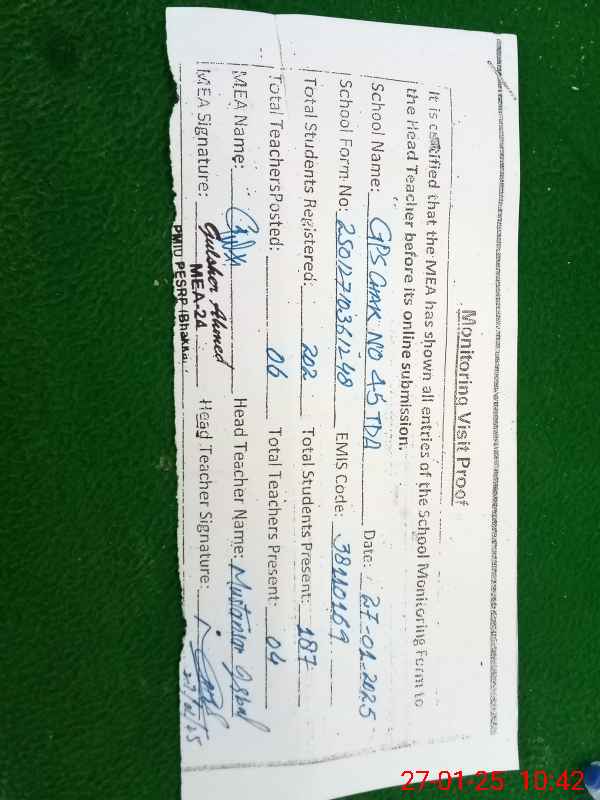 Monitoring Visit Proof
It is certified that the MEA has shown all entries of the School Monitoring Form to
the Head Teacher before its online submission.
School Name: GPS CHAK NO 45 TDA Date: 27-01-2025
School Form No: 25012710361248 EMIS Code: 38110169
Total Students Registered: 202 Total Students Present: 187
Total TeachersPosted: 06 Total Teachers Present: 04
MEA Name: Head Teacher Name: Iqbal
MEA Signature: Gulsher Ahmed Head Teacher Signature:
MEA-24
PMIU PESRP (Bhakkar
27-01-25 10:42